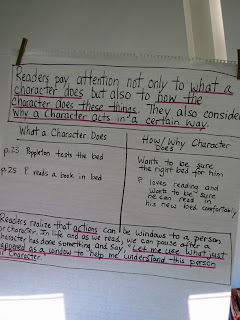 Readers pay attention not only to what a
character does but also to how the
character does these things. They also consider
why a character acts in a certain way.
What a Character Does
How/Why Character
Does
p.25 Poppleton tests the bed
Wants to be sure
the right bed for him
p.25 P. reads a book in bed
P. loves reading and
wants to be sure
he can read in
his new bed comfortably
Readers realize that actions can be windows to a person
or character. In life and as we read, we can pause after a
character has done something and say, "Let me use what just
happened as a window to help me understand this person
or Character.